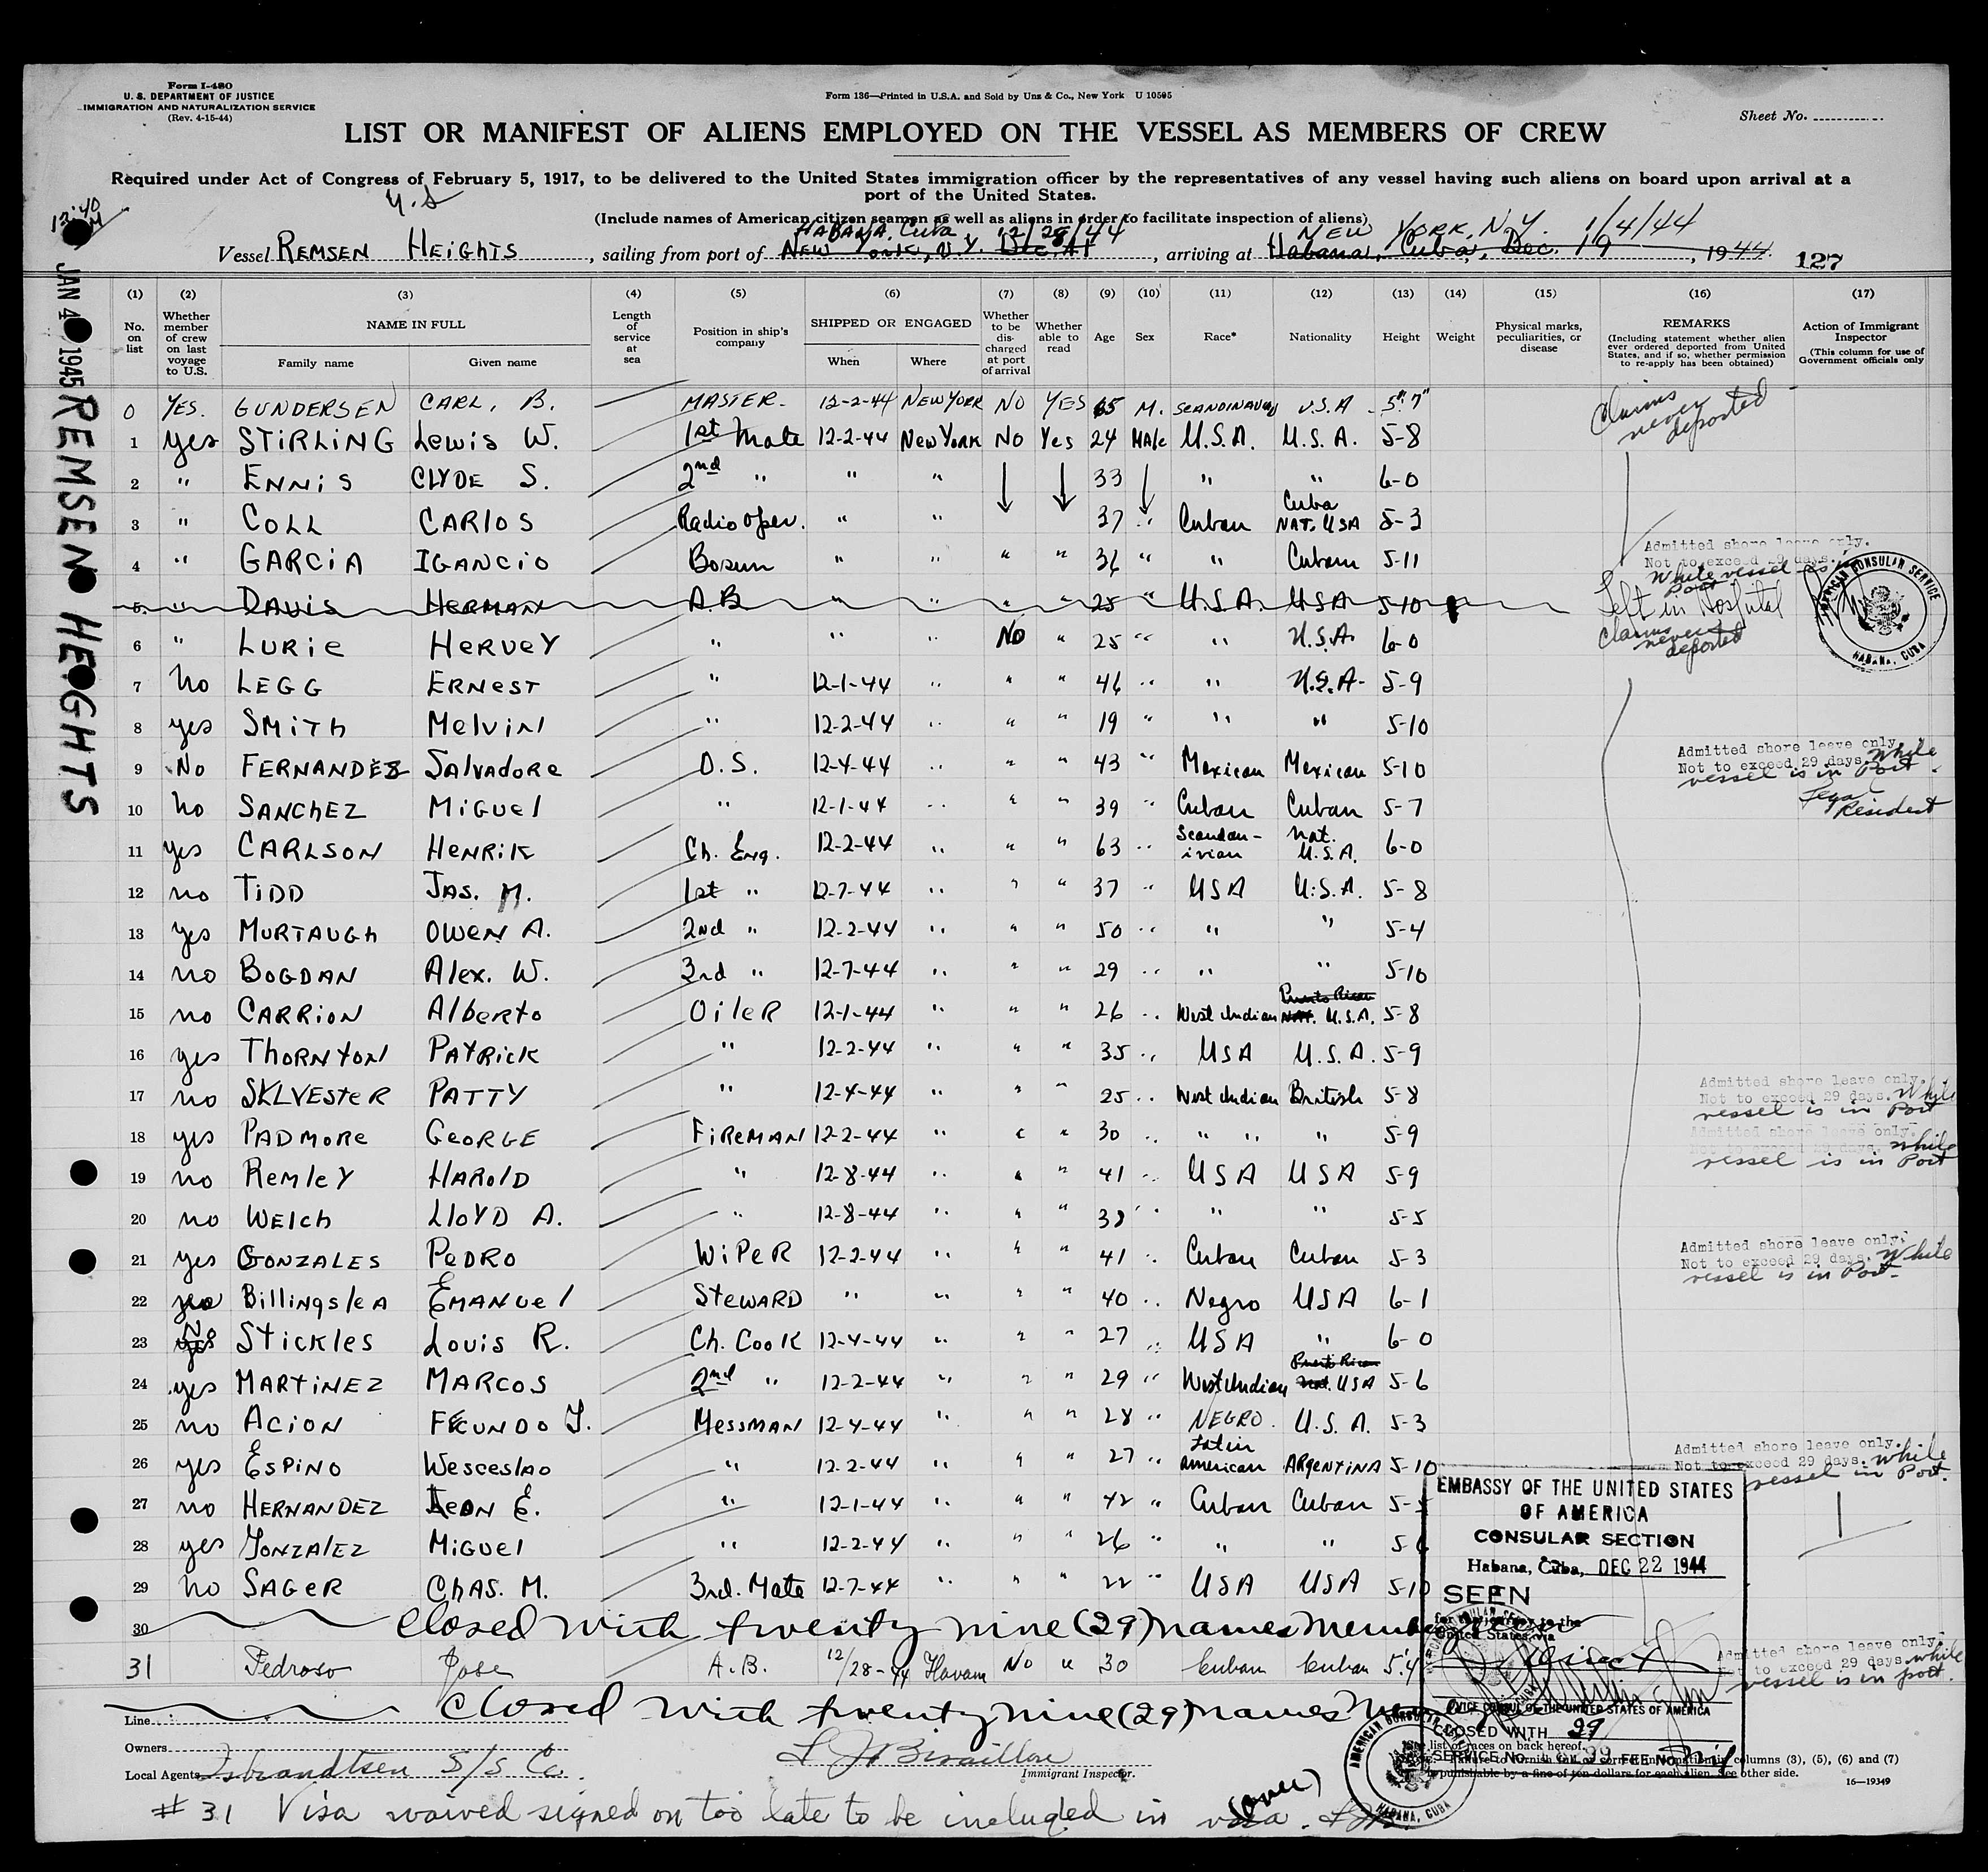 Form I-480
U. S. DEPARTMENT OF JUSTICE
IMMIGRATION AND NATURALIZATION SERVICE
(Rev. 4-15-44)
Form 136—Printed in U.S.A. and Sold by Unz & Co., New York U 10595
Sheet No.
LIST OR MANIFEST OF ALIENS EMPLOYED ON THE VESSEL AS MEMBERS OF CREW
Required under Act of Congress of February 5, 1917, to be delivered to the United States immigration officer by the representatives of any vessel having such aliens on board upon arrival at a
port of the United States.
(Include names of American citizen seamen as well as aliens in order to facilitate inspection of aliens)
HABANA, Cuba 12/28/44 NEW YORK, N.Y. 1/4/44
Vessel REMSEN HEIGHTS, sailing from port of New York, N.Y. Dec. 11, arriving at Habana, Cuba, Dec. 19, 1944. 127
JAN 4 1945 REMSEN HEIGHTS
(1) (2) (3) (4) (5) (6) (7) (8) (9) (10) (11) (12) (13) (14) (15) (16) (17)
No. on list
Whether member of crew on last voyage to U.S.
NAME IN FULL
Family name Given name
Length of service at sea
Position in ship's company
SHIPPED OR ENGAGED
When Where
Whether to be discharged at port of arrival
Whether able to read
Age Sex Race* Nationality Height Weight
Physical marks, peculiarities, or disease
REMARKS
(Including statement whether alien ever ordered deported from United States, and if so, whether permission to re-apply has been obtained)
Action of Immigrant Inspector
(This column for use of Government officials only
0 YES. GUNDERSEN CARL, B. MASTER- 12-2-44 NEW YORK NO YES 65 M. SCANDINAVIAN U.S.A 5"7" Claims never deported
1 yes STIRLING Lewis W. 1st Mate 12-2-44 New York No Yes 24 MAle U.S.A. U.S.A. 5-8
2 " ENNIS CLYDE S. 2nd " " " 33 " " 6-0
3 " COLL CARLOS Radio Oper. " " 37 " Cuban Cuba NAT. USA 5-3
4 " GARCIA IGANCIO Bosun " " " " 36 " " Cuban 5-11 Admitted shore leave only. Not to exceed 29 days. While vessel is in Port
5 " DAVIS HERMAN A.B. " " " " 25 " U.S.A. USA 5-10 Left in Hospital
6 " LURIE HERVEY " " " NO " 25 " " U.S.A. 6-0 Claims never deported
7 No LEGG ERNEST " 12-1-44 " " " 46 " " U.S.A- 5-9
8 yes SMITH Melvin " 12-2-44 " " " 19 " " " 5-10
9 No FERNANDEZ SALVADORE O.S. 12-4-44 " " " 43 " Mexican Mexican 5-10 Admitted shore leave only. Not to exceed 29 days. While vessel is in Port.
10 No SANCHEZ MIGUEL " 12-1-44 " " " 39 " Cuban Cuban 5-7 Legal Resident
11 yes CARLSON HENRIK Ch. Eng. 12-2-44 " " " 63 " Scandan-ivian Nat. U.S.A. 6-0
12 no TIDD JAS. M. 1st " 12-7-44 " " " 37 " USA U.S.A. 5-8
13 yes MURTAUGH OWEN A. 2nd " 12-2-44 " " " 50 " " " 5-4
14 no BOGDAN Alex. W. 3rd " 12-7-44 " " " 29 " " " 5-10
15 no CARRION Alberto OILER 12-1-44 " " " 26 " West Indian Puerto Rican NAT. U.S.A. 5-8
16 yes THORNTON PATRICK " 12-2-44 " " " 35 " USA U.S.A. 5-9
17 no SYLVESTER PATTY " 12-4-44 " " " 25 " West Indian British 5-8 Admitted shore leave only. Not to exceed 29 days. While vessel is in Port
18 yes PADMORE GEORGE FIREMAN 12-2-44 " " " 30 " " " " 5-9 Admitted shore leave only. Not to exceed 29 days. while vessel is in Port
19 no REMLEY HAROLD " 12-8-44 " " " 41 " USA USA 5-9
20 no WELCH LLOYD A. " 12-8-44 " " " 38 " " " 5-5
21 yes GONZALES PEDRO WIPER 12-2-44 " " " 41 " Cuban Cuban 5-3 Admitted shore leave only. Not to exceed 29 days. While vessel is in Port-
22 Billingslea EMANUEL STEWARD " " " " 40 " Negro USA 6-1
23 No STICKLES LOUIS R. Ch. Cook 12-4-44 " " " 27 " USA " 6-0
24 yes MARTINEZ MARCOS 2nd " 12-2-44 " " " 29 " West Indian Puerto Rican Nat. USA 5-6
25 no ACION FECUNDO J. MESSMAN 12-4-44 " " " 28 " NEGRO. U.S.A. 5-3
26 yes ESPINO WESCESLAO " 12-2-44 " " " 27 " Latin american ARGENTINA 5-10 Admitted shore leave only. Not to exceed 29 days. While vessel in Port.
27 no HERNANDEZ LEON E. " 12-1-44 " " " 42 " Cuban Cuban 5-5
28 yes GONZALEZ MIGUEL " 12-2-44 " " " 26 " " " 5-6
29 no SAGER CHAS. M. 3rd. Mate 12-7-44 " " " 22 " USA USA 5-10
30 Closed with twenty nine (29) names
31 Pedroso Jose A.B. 12/28-44 Havana No " 30 Cuban Cuban 5'4 Admitted shore leave only. Not to exceed 29 days while vessel is in port.
Closed with twenty nine (29) names
EMBASSY OF THE UNITED STATES
OF AMERICA
CONSULAR SECTION
Habana, Cuba, DEC 22 1944
SEEN
for the journey to the
United States, via
Direct
VICE CONSUL OF THE UNITED STATES OF AMERICA
CLOSED WITH 29
SERVICE NO. FEE NO.
AMERICAN CONSULAR SERVICE
HABANA, CUBA
AMERICAN CONSULAR SERVICE
HABANA, CUBA
Line
Owners
Local Agents Isbrandtsen S/S Co.
Immigrant Inspector.
See list of races on back hereof.
columns (3), (5), (6) and (7)
is punishable by a fine of ten dollars for each alien. See other side.
16—19349
(over)
# 31 Visa waived signed on too late to be included in visa.